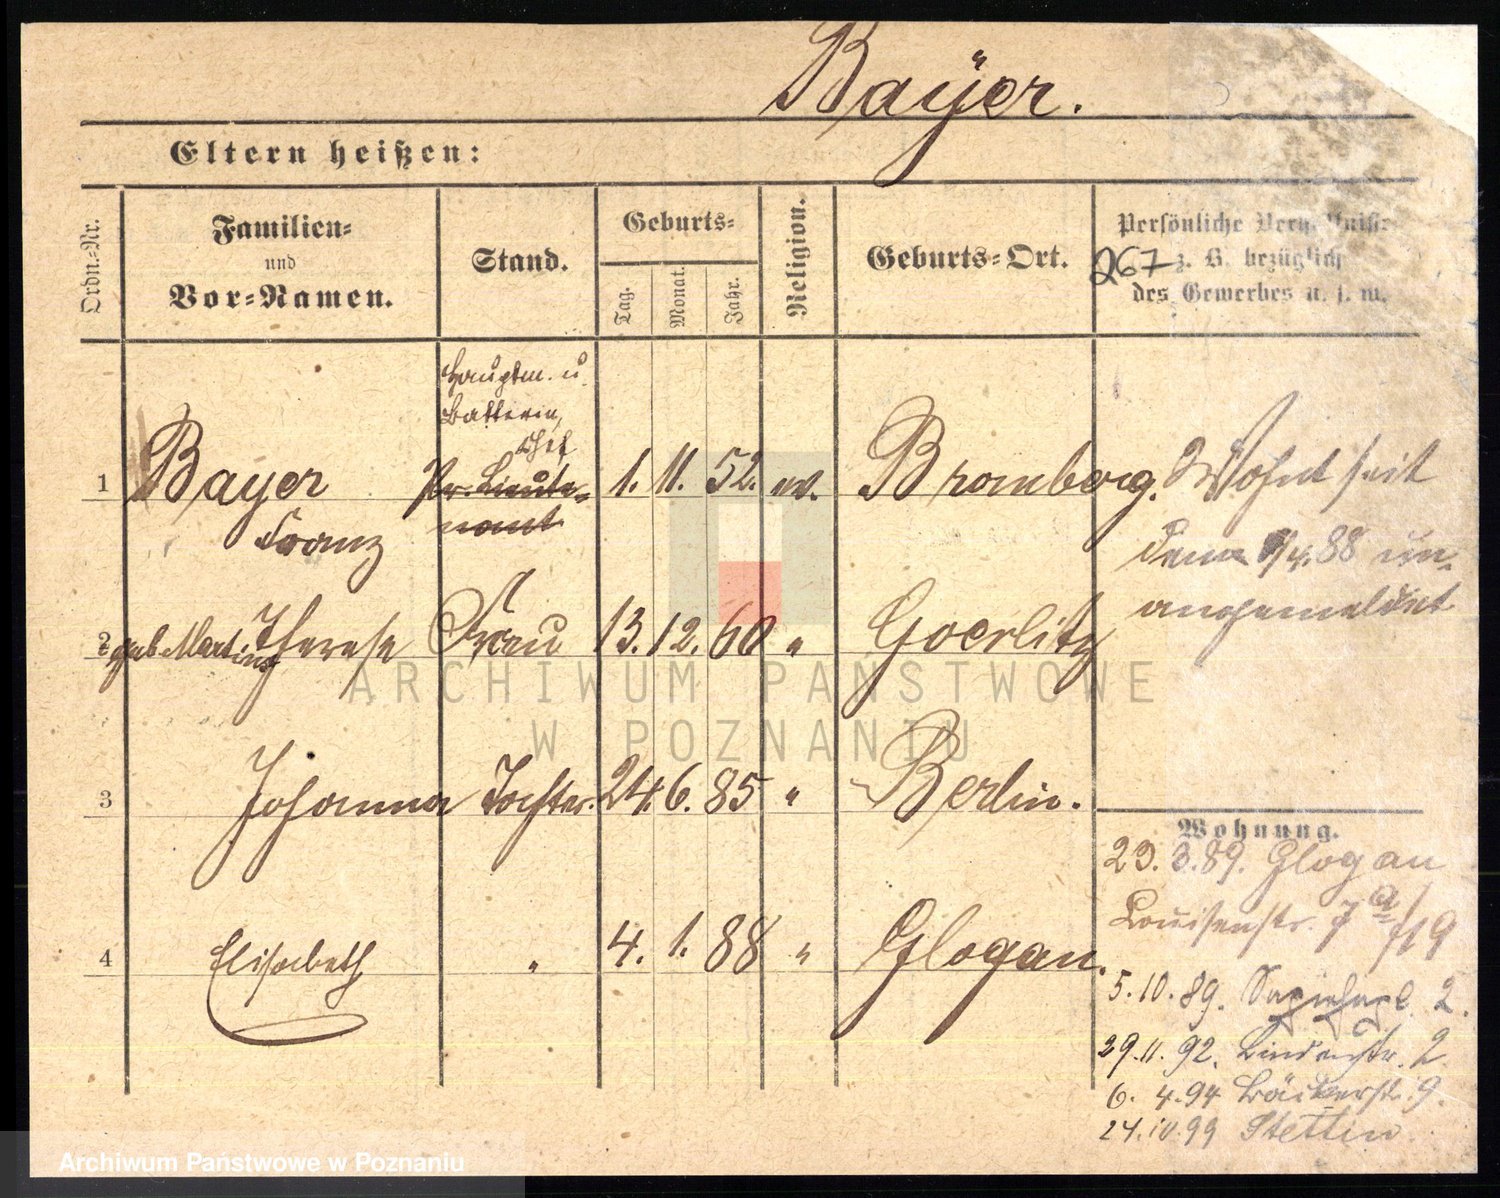 Bayer.
Eltern heißen:
Ordn.-Nr.
Familien-
und
Vor-Namen.
Stand.
Geburts-
Tag.
Monat.
Jahr.
Religion.
Geburts-Ort.
Persönliche
267 z. B. bezüglich
des Gewerbes u. s. w.
Hauptm. u.
Batterie
Chef
1 Bayer Pr. Lieute- 1. 11. 52. ev. Bromberg. Wohnt seit
Franz nant
88 un-
angemeldet
2 geb. Martins Therese Frau 13. 12. 60 " Goerlitz
3 Johanna Tochter. 24. 6. 85 " Berlin.
4 Elisabeth " 4. 1. 88 " Glogau.
Wohnung.
23. 3. 89. Glogau
Louisenstr. 7a 19
5. 10. 89. Sapiehapl. 2.
29. 11. 92. Lindenstr. 2.
6. 4. 94 Bäckerstr. 9.
24. 10. 99 Stettin.
ARCHIWUM PAŃSTWOWE
W POZNANIU
Archiwum Państwowe w Poznaniu